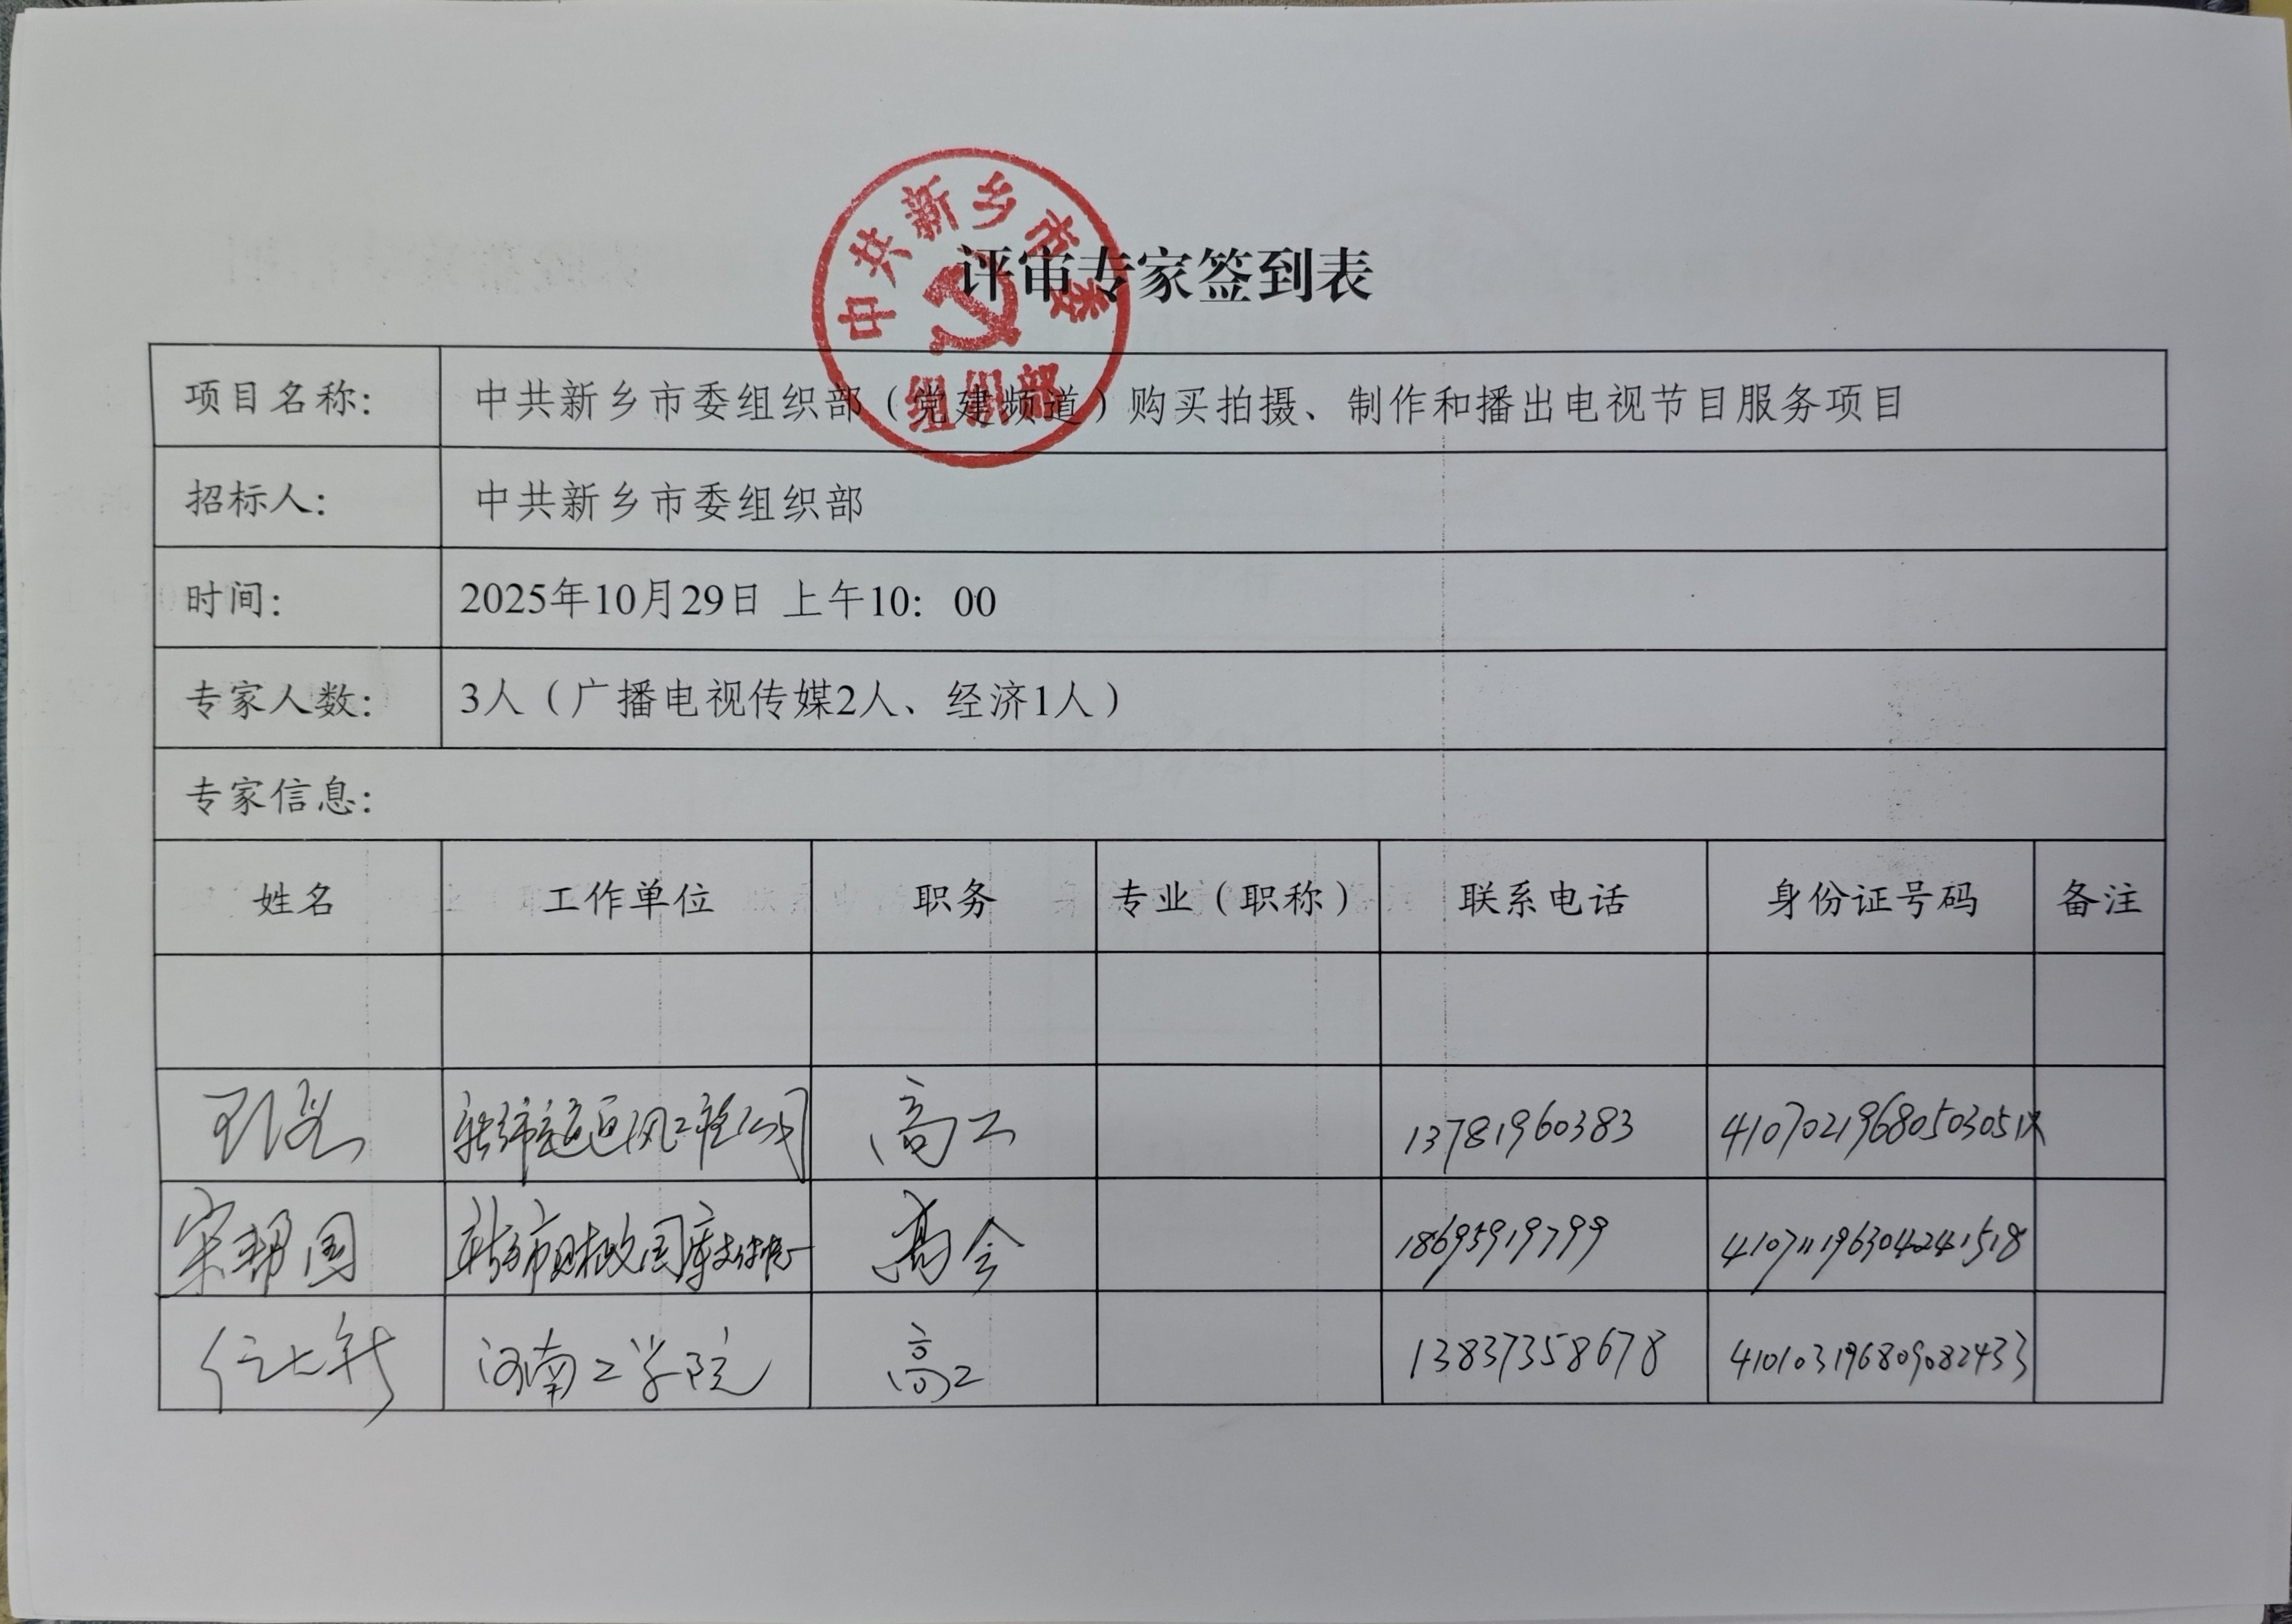 评审专家签到表
中共新乡市委
组织部
项目名称: 中共新乡市委组织部（党建频道）购买拍摄、制作和播出电视节目服务项目
招标人: 中共新乡市委组织部
时间: 2025年10月29日 上午10: 00
专家人数: 3人（广播电视传媒2人、经济1人）
专家信息:
姓名 工作单位 职务 专业（职称） 联系电话 身份证号码 备注
高工 13781960383
宋帮国 新乡市财政国库支付中心 高会 18695919799 410711196304241518
河南工学院 高工 13837358678 410103196809082433